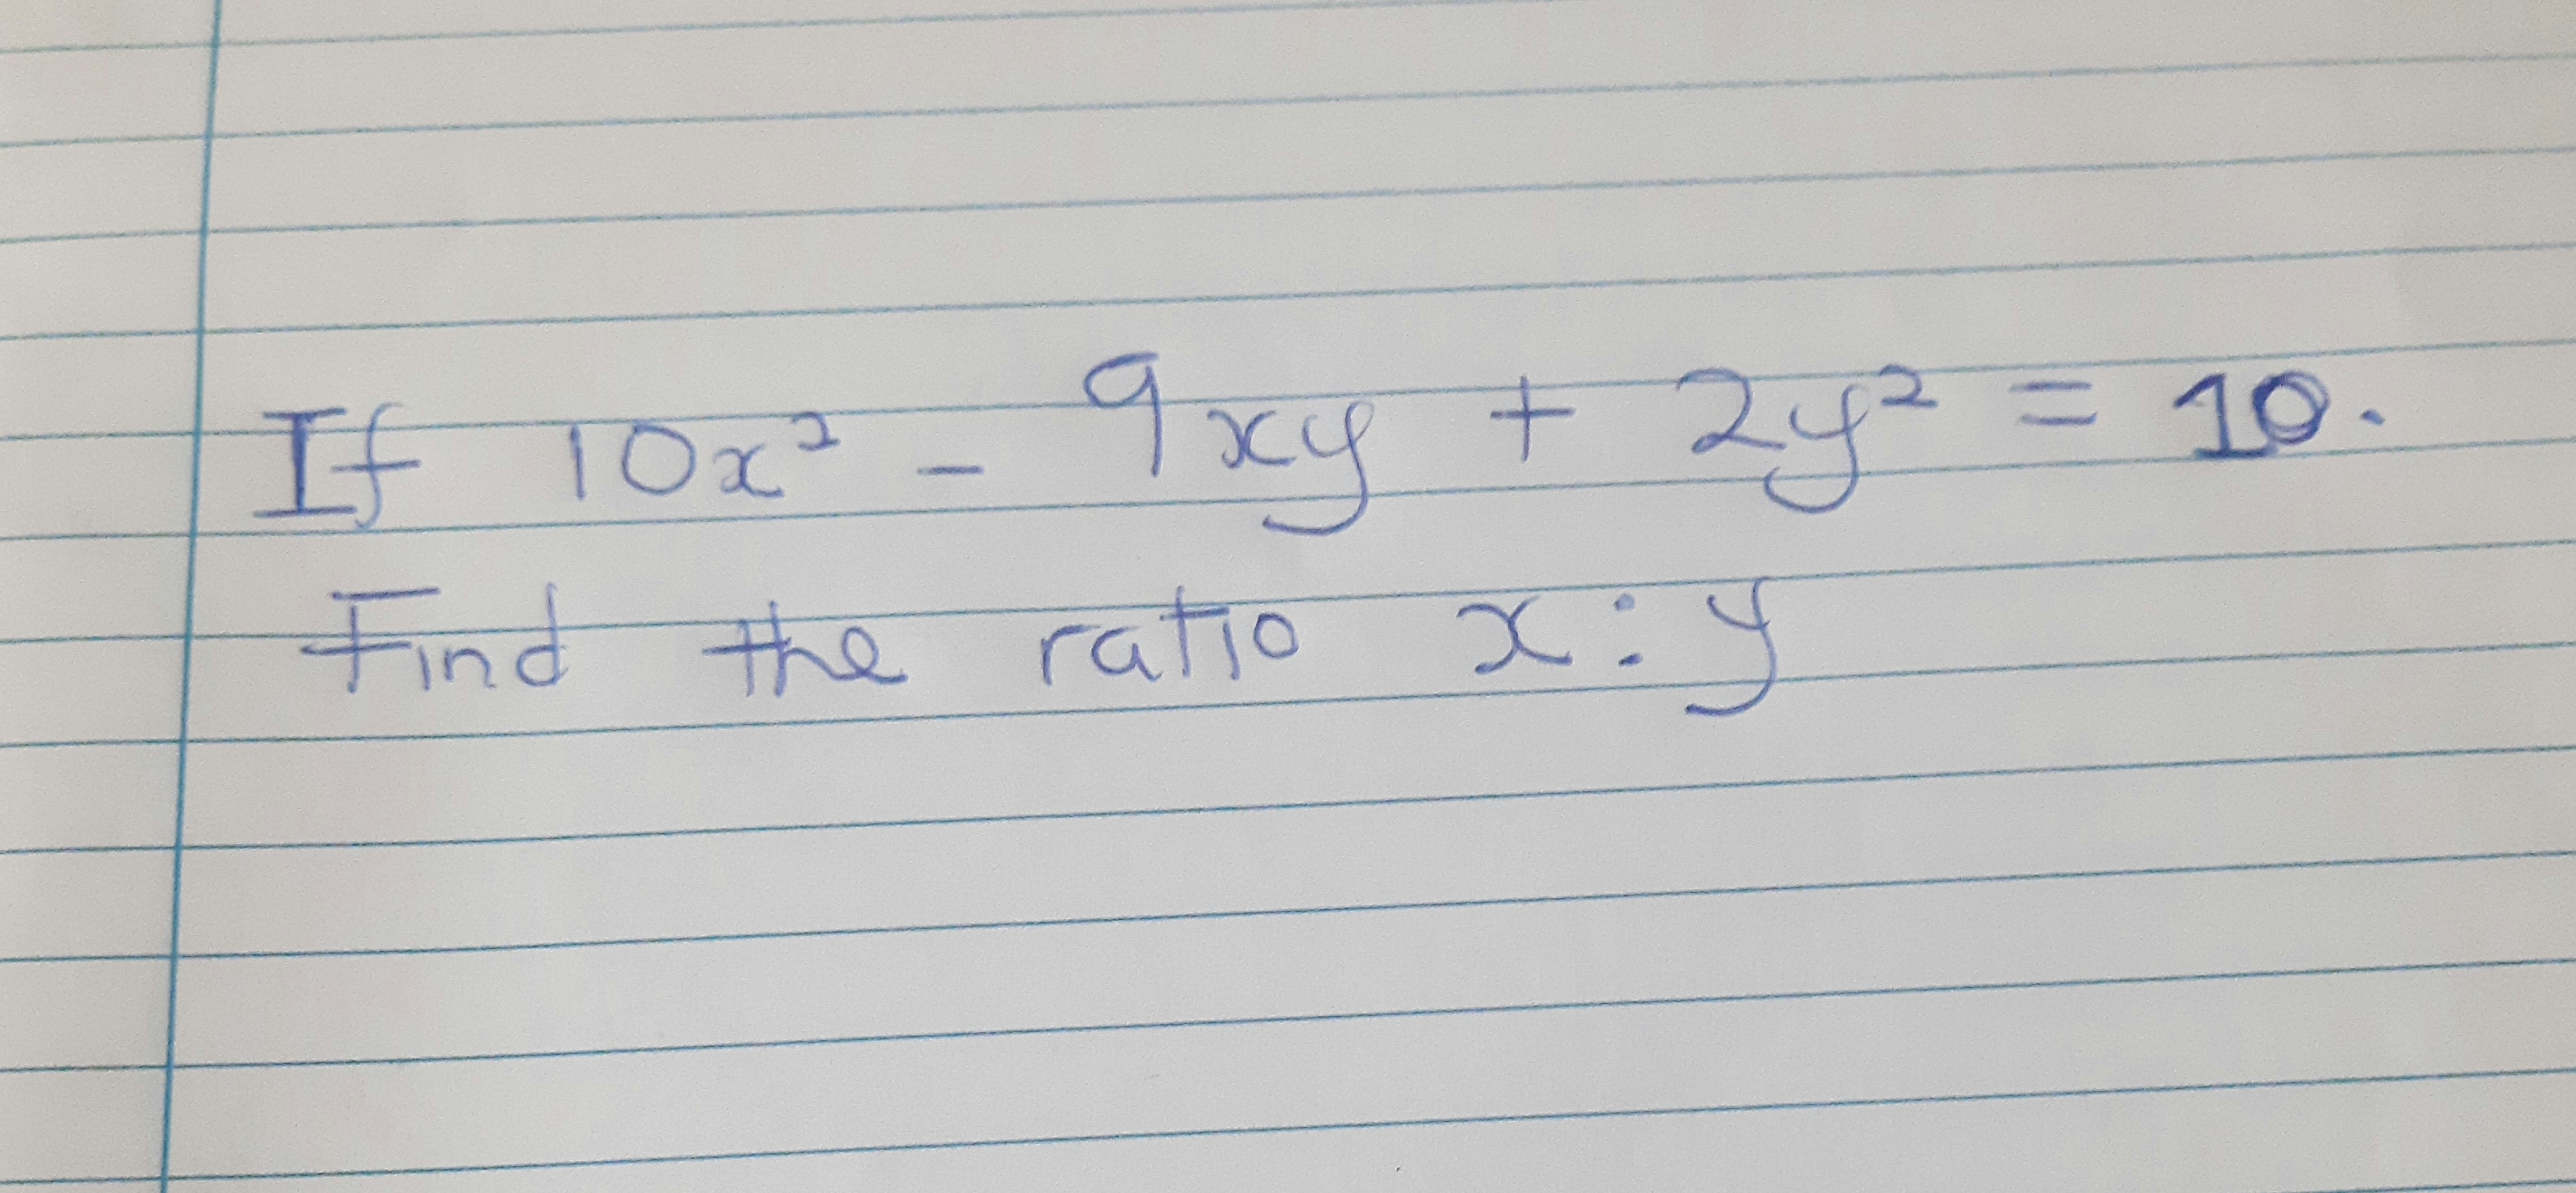 If 10x² - 9xy + 2y² = 10.
Find the ratio x : y